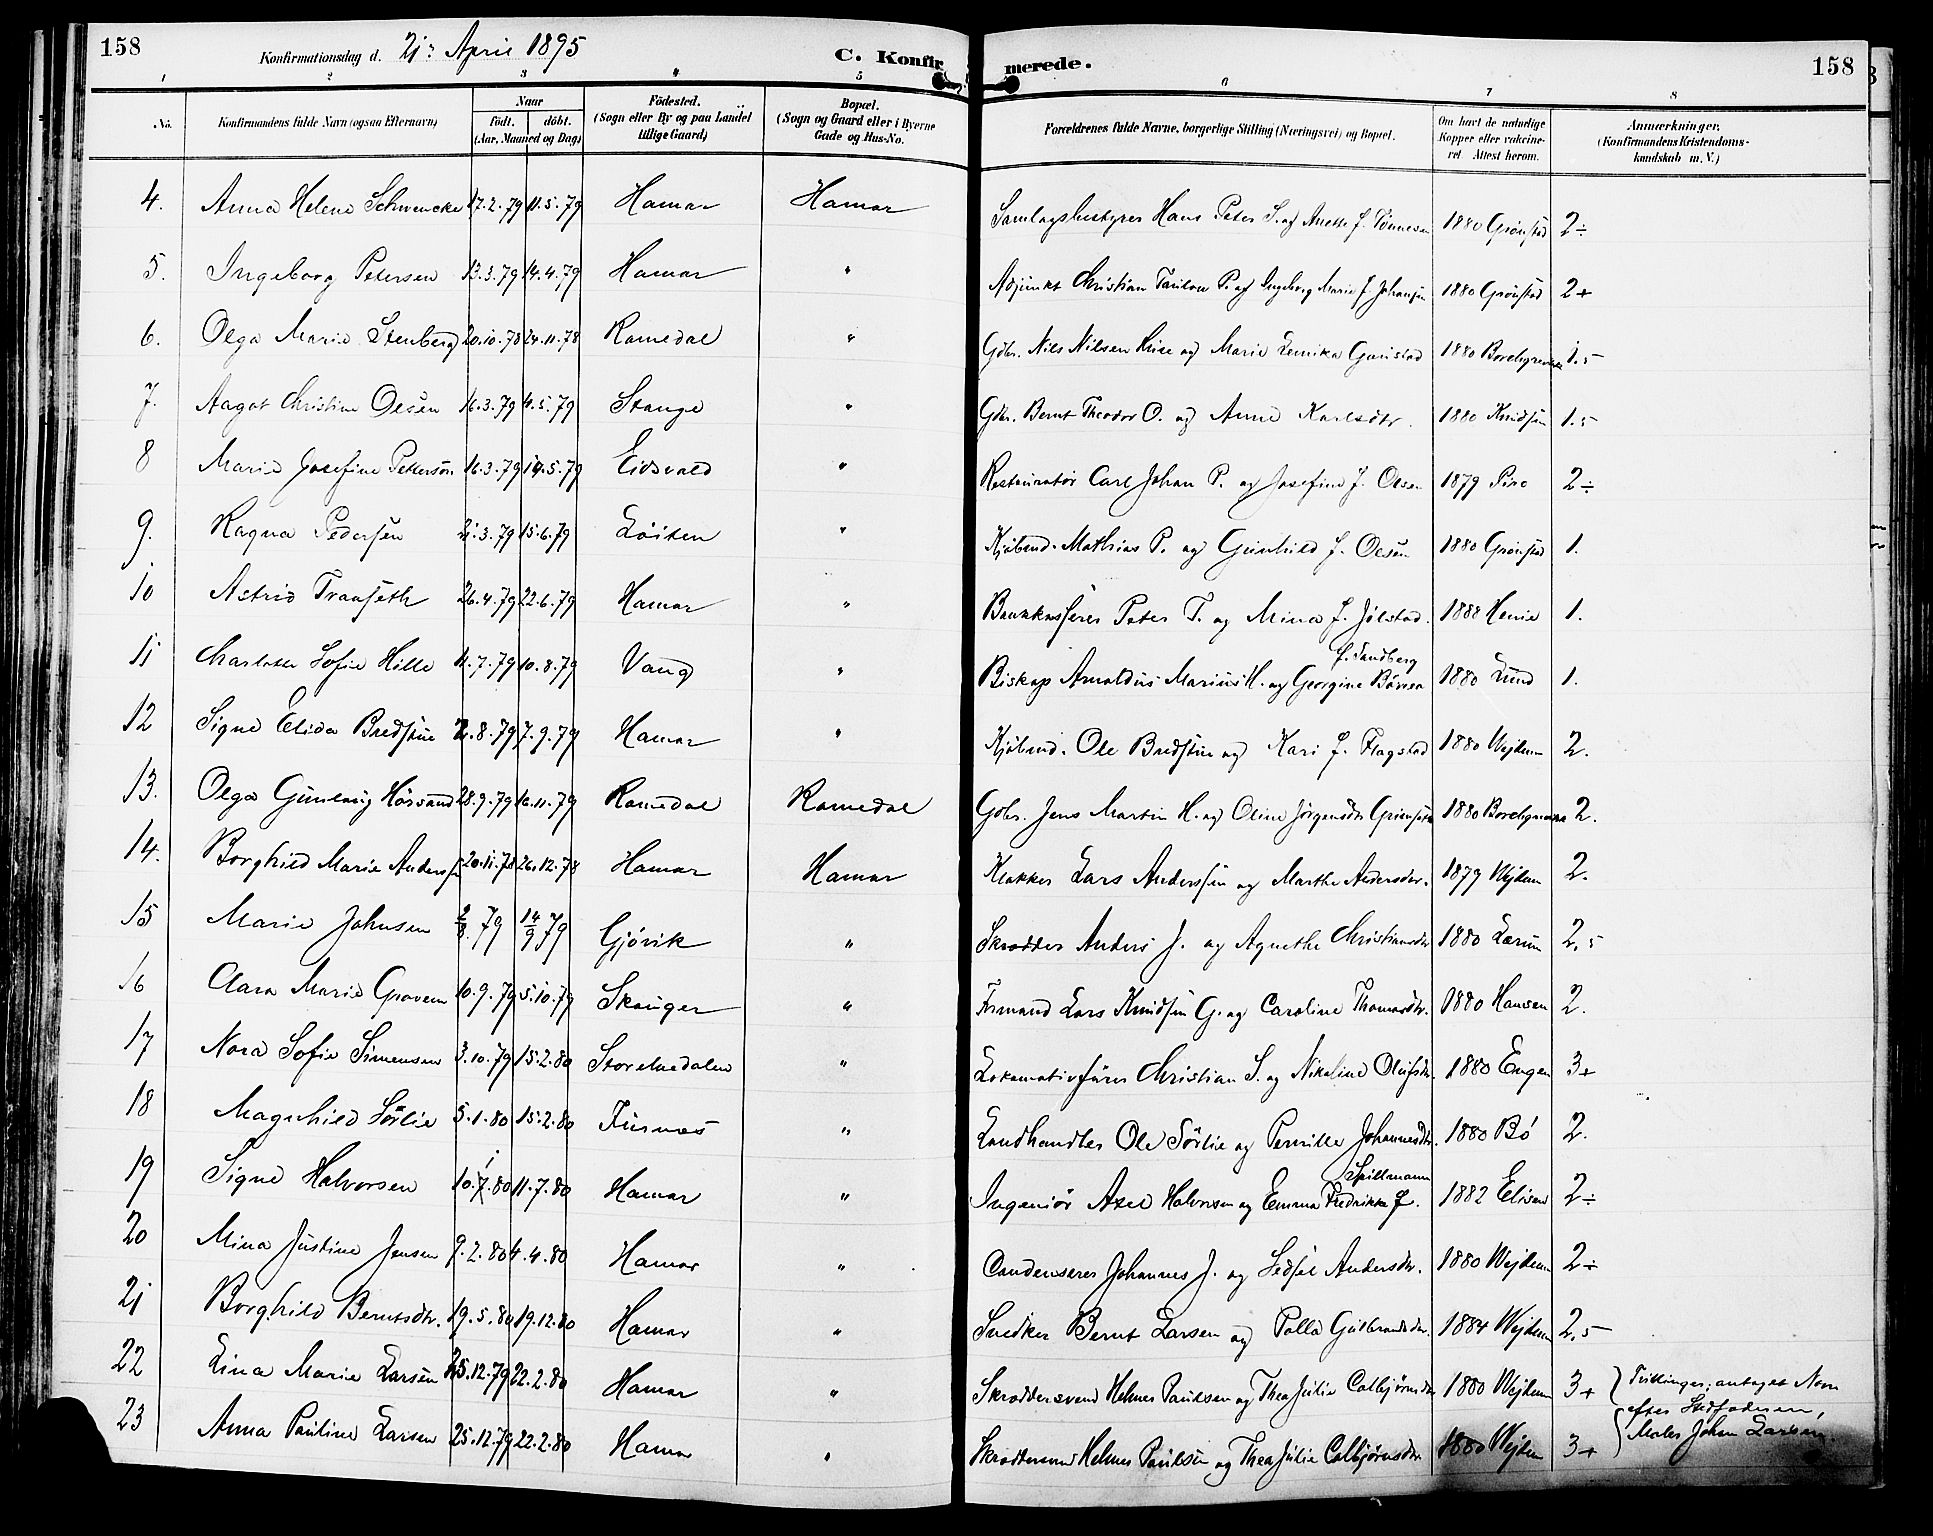 158 Konfirmationsdag d. 21: April 1895 C. Konfirmerede. 158
1 2 3 4 5 6 7 8
No. Konfirmandens fulde Navn (ogsaa Efternavn)
Naar
födt. döbt.
(Aar, Maaned og Dag)
Födested.
(Sogn eller By og paa Landet
tillige Gaard)
Bopæl.
(Sogn og Gaard eller i Byerne
Gade og Hus-No.
Forældrenes fulde Navne, borgerlige Stilling (Næringsvei) og Bopæl.
Om havt de naturlige
Kopper eller vakcine-
ret Attest herom.
Anmærkninger.
(Konfirmandens Kristendoms-
kundskab m. V.)
4. Anna Helene Schwencke 17.2.79 11.5.79 Hamar Hamar Samlagsbestyrer Hans Peter S. og Anette f. Tönnesen 1880 Grönstad 2÷
5. Ingeborg Petersen 13.3.79 14.4.79 Hamar " Adjunkt Christian Paulow P. og Ingeborg Marie f. Johansen 1880 Grönstad 2+
6. Olga Marie Stenberg 20.10.78 24.11.78 Romedal " Gbr. Nils Nilsen og Marie Lemika Gaustad 1880 Borchgrevink 1.5
7. Aagot Christine Olsen 16.3.79 4.5.79 Stange " Gbr. Bernt Theodor O. og Anne Karlsdtr. 1880 Knudsen 1.5
8 Marie Josefine Pettersön 16.3.79 14.5.79 Eidsvold " Restauratör Carl Johan P. og Josefine f. Olsen 1879 Piro 2÷
9. Ragna Pedersen 21.3.79 15.6.79 Löiten " Kjöbmd. Mathias P. og Gunhild f. Olsen 1880 Grönstad 1.
10 Astrid Transeth 26.4.79 22.6.79 Hamar " Bankkasserer Peter T. og Mina f. Jölstad. 1888 Henie 1.
11 Charlotte Sofie Hille 11.7.79 10.8.79 Vang " Biskop Arnoldus Marius H. og Georgine Böv f. Sandberg 1880 Lund 1.
12 Signe Elida Bredstue 2.8.79 7.9.79 Hamar " Kjöbmd. Ole Bredstue og Kari f. Flagstad 1880 Wejdem 2.
13. Olga Gunlaug Hörsand 28.9.79 16.11.79 Romedal Romedal Gbr. Jens Martin H. og Oline Jörgensdtr 1880 Borchgrevink 2.
14. Borghild Marie Andersen 20.11.78 26.12.78 Hamar Hamar Klokker Lars Anderssen og Marthe Andersdtr. 1879 Wejdem 2.
15 Marie Johnsen 2/8 79 14/9 79 Gjövik " Skrædder Anders J. og Agnethe Christiansdtr 1880 Lærum 2,5
16 Clara Marie Graven 10.9.79 5.10.79 Skouger " Formand Lars Knudsen G. og Caroline Thomasdtr. 1880 Hansen 2.
17 Nora Sofie Simensen 3.10.79 15.2.80 Storelvedalen " Lokomotivförer Christian S. og Nikoline Olufsdtr. 1880 Engen 3+
18 Magnhild Sörlie 5.1.80 15.2.80 Furnæs " Landhandler Ole Sörlie og Pernille Johannesdtr. 1880 Bö 2.
19 Signe Halvorsen 10.7.80 11.7.80 Hamar " Ingeniör Axel Halvorsen og Emma Fredrikke f. Spillmann 1882 2÷
20 Mina Justine Jensen 9.2.80 4.4.80 Hamar " Condenserer Johannes J. og Sidsel Andersdtr. 1880 Wejdem 2÷
21 Borghild Berntsdtr. 19.5.80 19.12.80 Hamar " Snedker Bernt Larsen og Polla Gulbrandsdtr 1884 Wejdem 2,5
22 Lina Marie Larsen 25.12.79 22.2.80 Hamar " Skræddersvend Helmer Paulsen og Thea Julie Colbjörnsdtr 1880 Wejdem 3+ Tvillinger; antaget Navn
efter Stedfaderen,
23 Anna Pauline Larsen 25.12.79 22.2.80 Hamar " Skræddersvend Helmer Paulsen og Thea Julie Colbjörnsdtr. 1880 Wejdem 3+ Maler Johan Larsen.